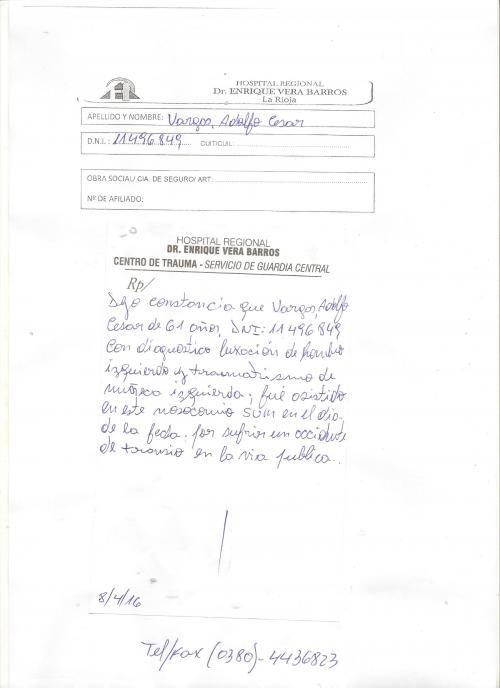 HOSPITAL REGIONAL
Dr. ENRIQUE VERA BARROS
La Rioja
APELLIDO Y NOMBRE: Vargas, Adolfo Cesar
D.N.I.: 11496849 CUIT/CUIL:
OBRA SOCIAL/ CIA. DE SEGURO/ ART:
Nº DE AFILIADO:
HOSPITAL REGIONAL
DR. ENRIQUE VERA BARROS
CENTRO DE TRAUMA - SERVICIO DE GUARDIA CENTRAL
Rp/
Dejo constancia que Vargas, Adolfo
Cesar de 61 años, DNI: 11496849
Con diagnostico luxación de hombro
izquierdo y traumatismo de
muñeca izquierda; fué asistido
en este nosocomio en el dia
de la fecha. por sufrir un accidente
de transito en la via publica.
8/4/16
Tel/Fax (0380)-4436823